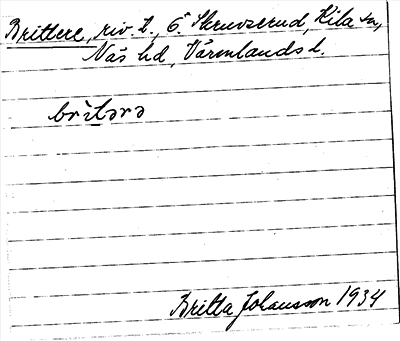 Brittere, riv. t., Ö. Skruvserud, Kila sn,
Näs hd, Värmlands l.
brìtərə
Britta Johansson 1934